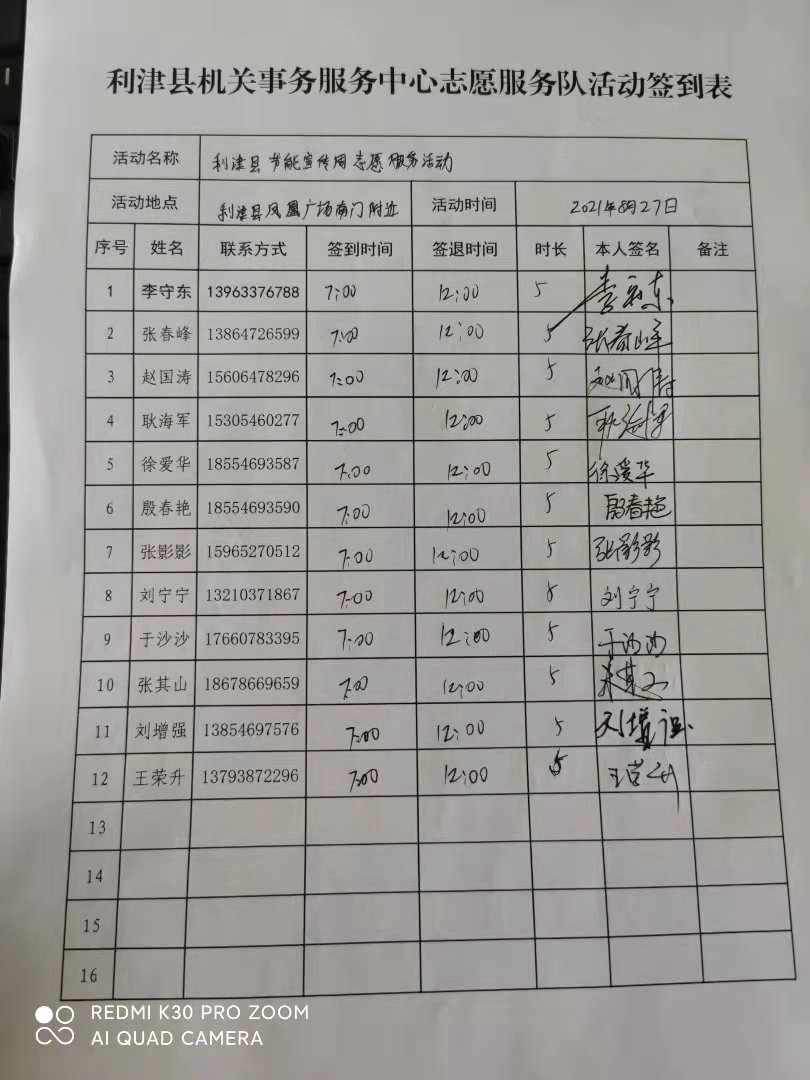 利津县机关事务服务中心志愿服务队活动签到表
活动名称 利津县节能宣传周志愿服务活动
活动地点 利津县凤凰广场南门附近 活动时间 2021年8月27日
序号 姓名 联系方式 签到时间 签退时间 时长 本人签名 备注
1 李守东 13963376788 7:00 12:00 5 李守东
2 张春峰 13864726599 7:00 12:00 5 张春峰
3 赵国涛 15606478296 7:00 12:00 5 赵国涛
4 耿海军 15305460277 7:00 12:00 5 耿海军
5 徐爱华 18554693587 7:00 12:00 5 徐爱华
6 殷春艳 18554693590 7:00 12:00 5 殷春艳
7 张影影 15965270512 7:00 12:00 5 张影影
8 刘宁宁 13210371867 7:00 12:00 5 刘宁宁
9 于沙沙 17660783395 7:00 12:00 5 于沙沙
10 张其山 18678669659 7:00 12:00 5 张其山
11 刘增强 13854697576 7:00 12:00 5 刘增强
12 王荣升 13793872296 7:00 12:00 5 王荣升
13
14
15
16
REDMI K30 PRO ZOOM
AI QUAD CAMERA